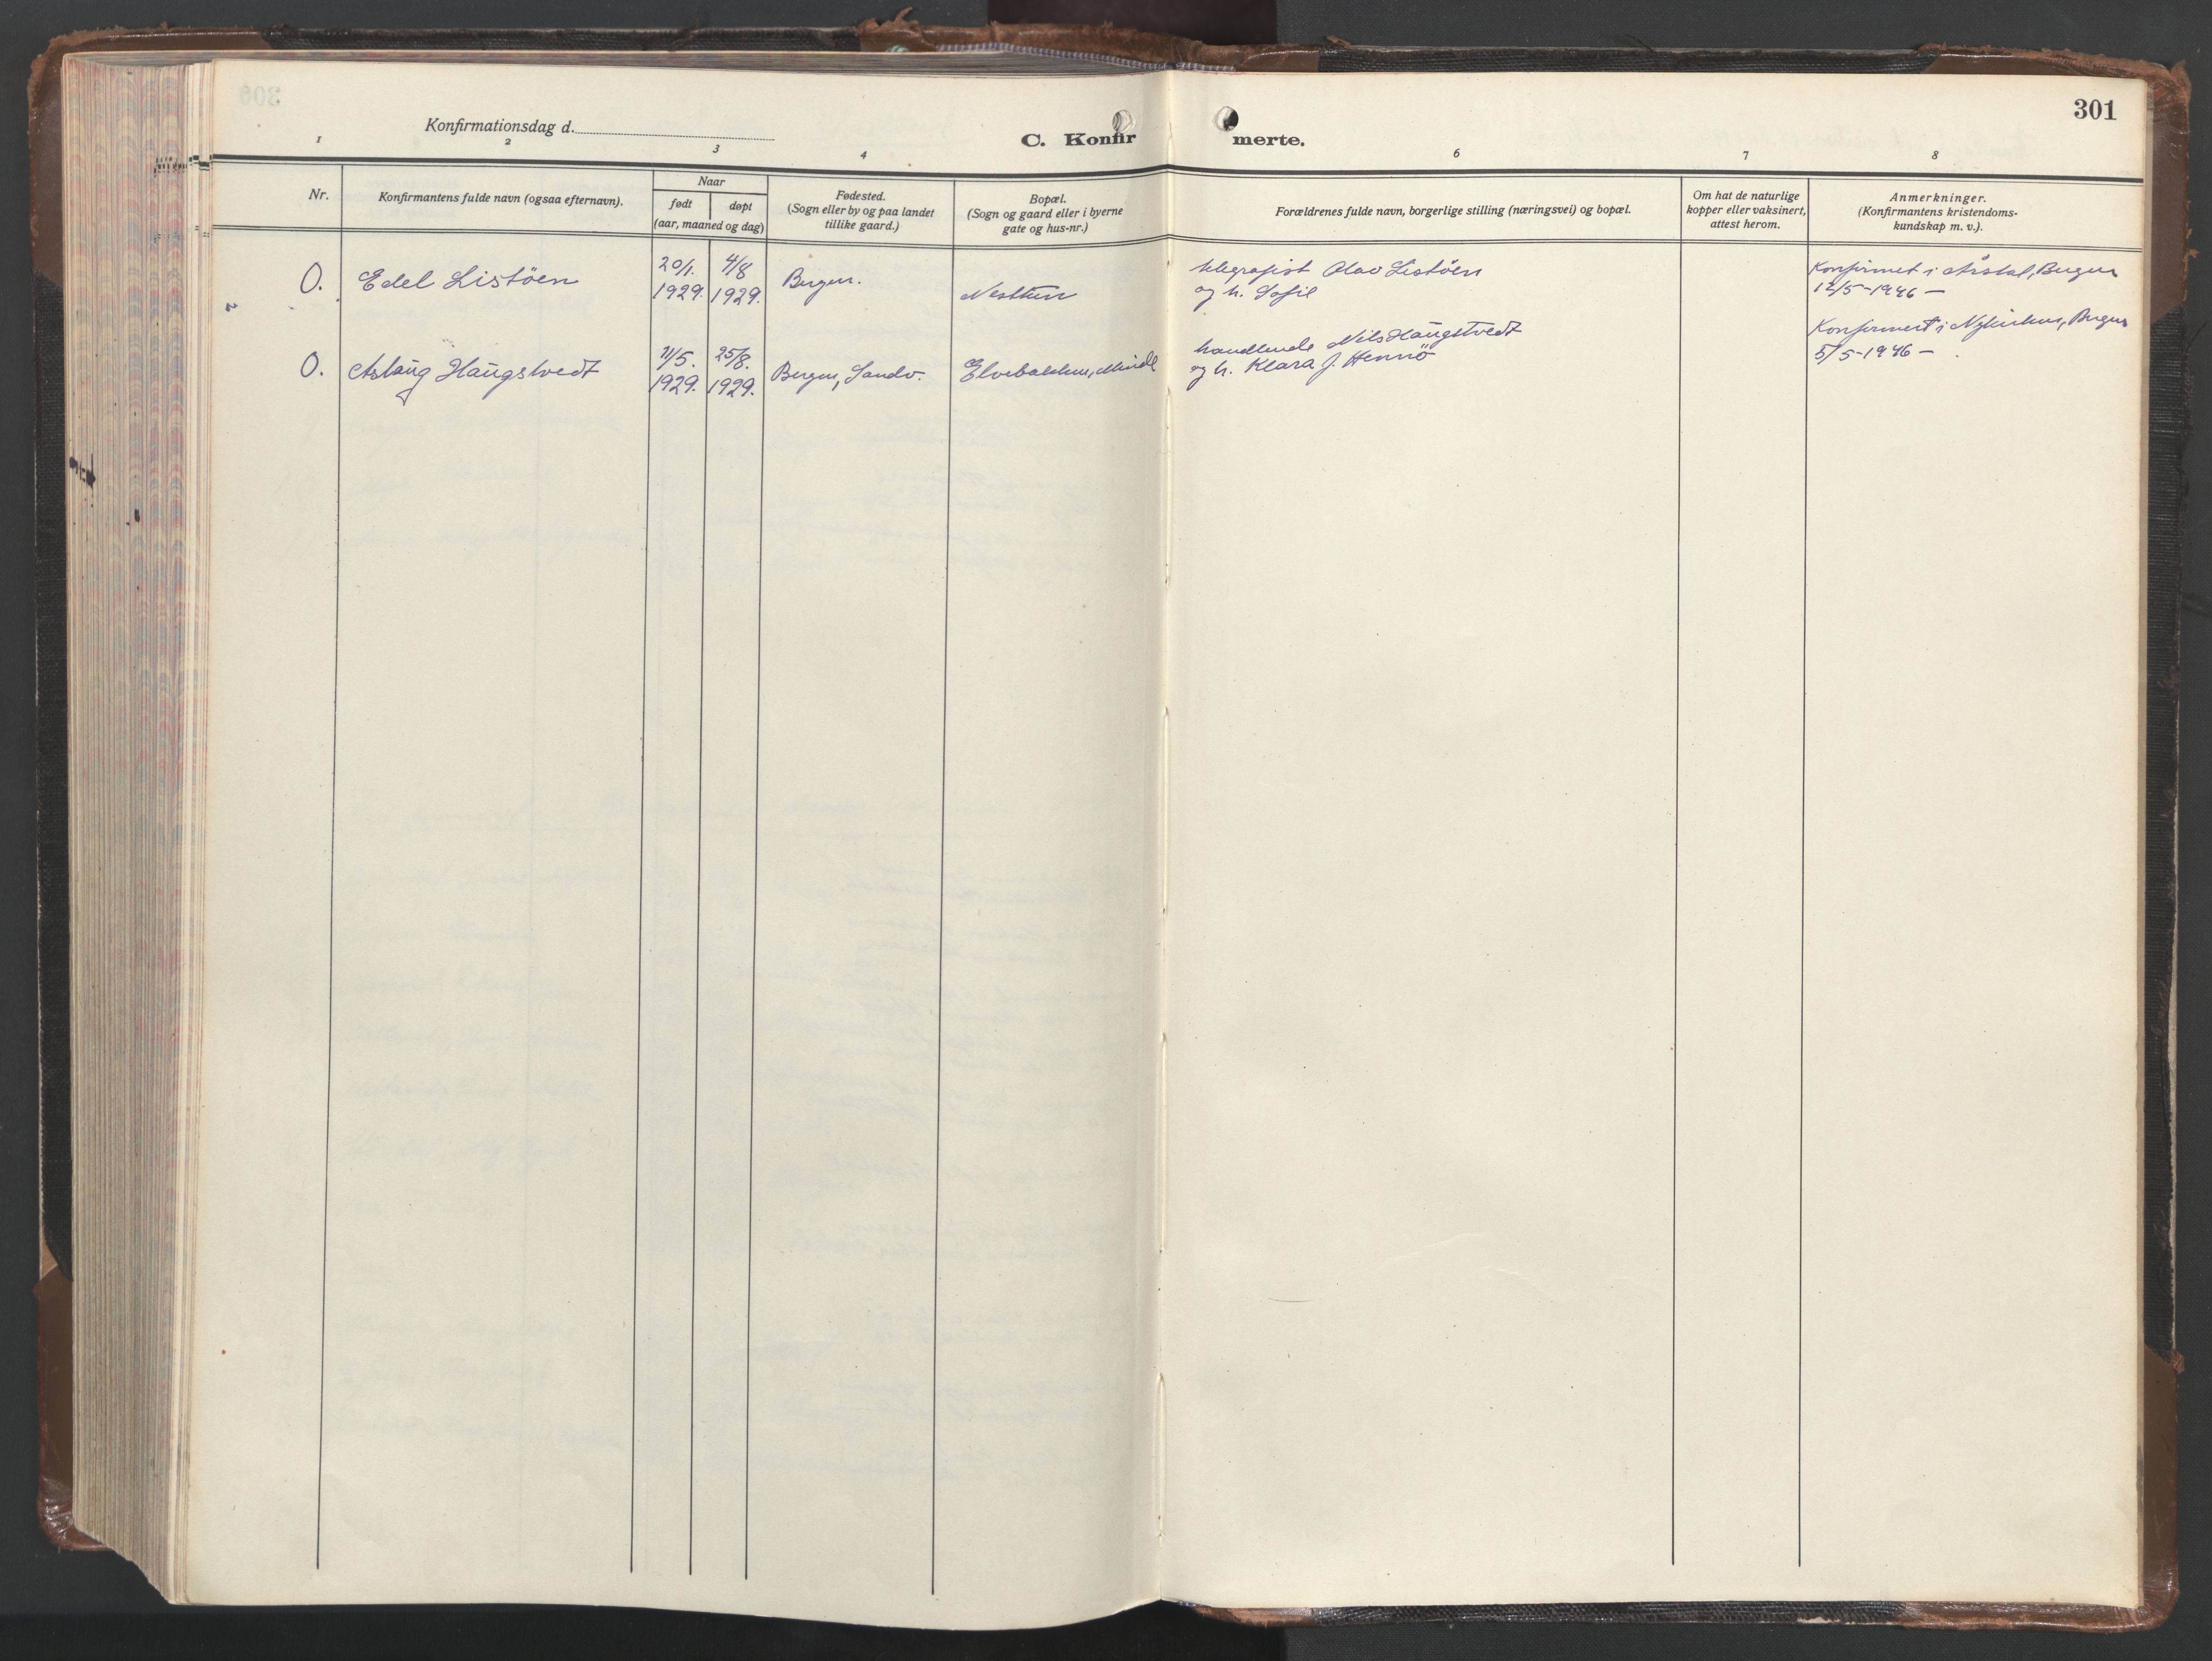 301
Konfirmationsdag d.
C. Konfirmerte.
1 2 3 4 6 7 8
Nr.
Konfirmantens fulde navn (ogsaa efternavn).
Naar
født døpt
(aar, maaned og dag)
Fødested.
(Sogn eller by og paa landet
tillike gaard.)
Bopæl.
(Sogn og gaard eller i byerne
gate og hus-nr.)
Forældrenes fulde navn, borgerlige stilling (næringsvei) og bopæl.
Om hat de naturlige
kopper eller vaksinert,
attest herom.
Anmerkninger.
(Konfirmantens kristendoms-
kundskap m. v.).
O. Edel Listöen
20/1. 1929.
4/8 1929.
Bergen.
Nesttun
telegrafist Olav Listöen
og h. Sofie
Konfirmert i Årstad, Bergen
12/5-1946 -
O. Aslaug Haugstvedt
11/5. 1929.
25/8. 1929.
Bergen, Sandv.
Elvebakken, Minde
handlende Nils Haugstvedt
og h. Klara J. Hennö
Konfirmert i Nykirken, Bergen
5/5-1946 -